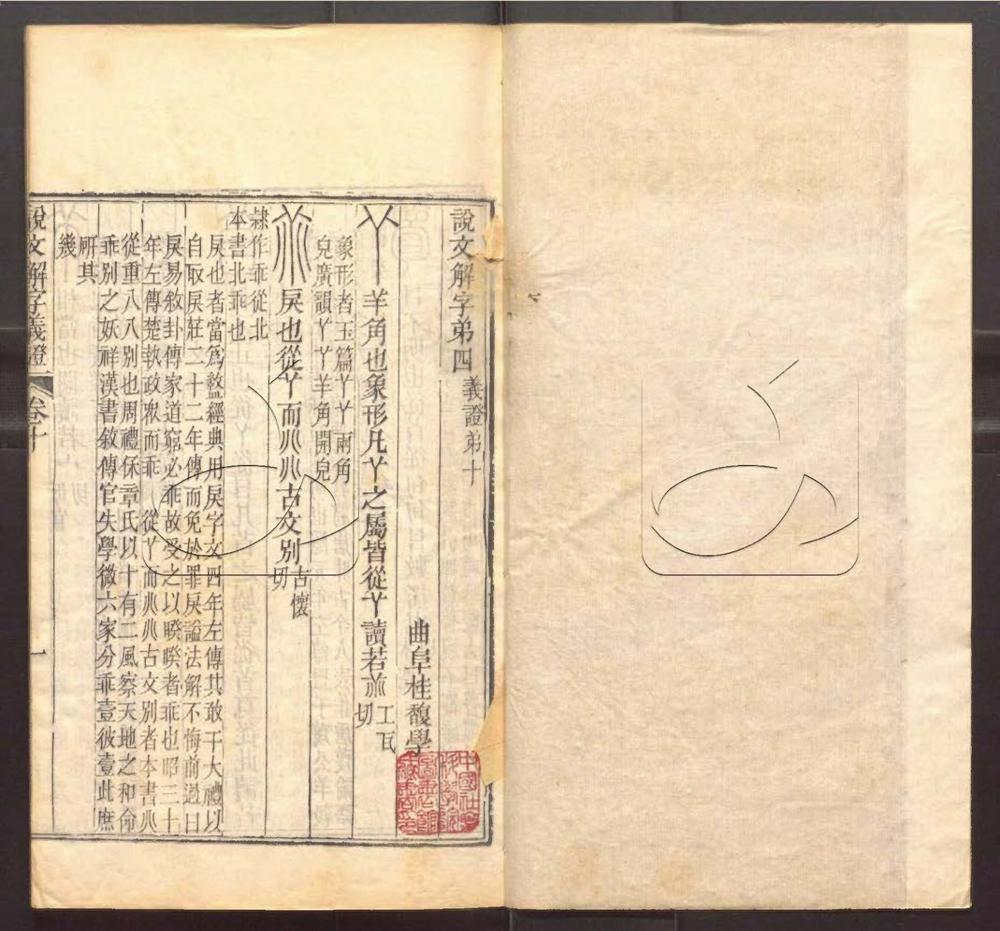 說文解字弟四 義證弟十
曲阜桂馥學
𦫳 羊角也象形凡𦫳之屬皆從𦫳讀若𦮃 工瓦切
象形者玉篇𦫳𦫳兩角
皃廣韻𦫳𦫳羊角開皃
戾也從𦫳而𠔁𠔁古文別 古懷切
隸作乖從北
本書北乖也
戾也者當爲盭經典用戾字文四年左傳其敢干大禮以
自取戾莊二十二年傳而免於罪戾謚法解不悔前過曰
戾易敘卦傳家道窮必乖故受之以睽睽者乖也昭三十
年左傳楚執政衆而乖 從𦫳而𠔁𠔁古文別者本書𠔁
從重八八別也周禮保章氏以十有二風察天地之和命
乖別之妖祥漢書敘傳官失學微六家分乖壹彼壹此庶
幾
所其
說文解字義證 卷十
一